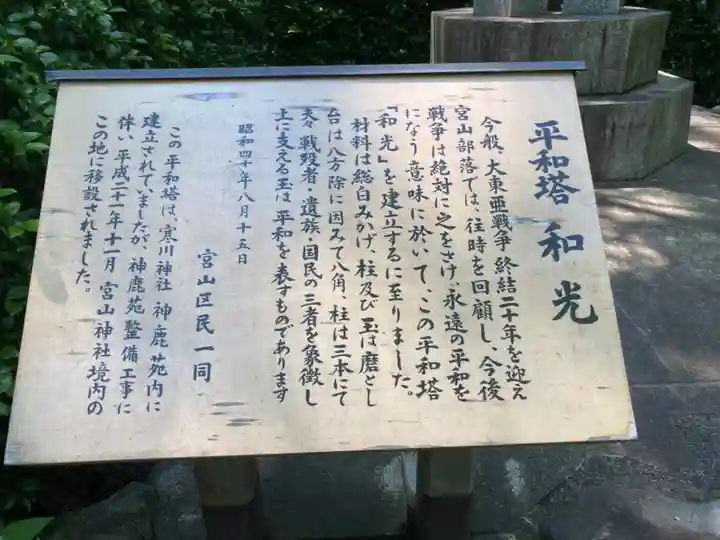 平和塔 和光
今般、大東亜戦争 終結二十年を迎え
宮山部落では、往時を回顧し、今後
戦争は絶対に之をさけ、永遠の平和を
になう意味に於いて、この平和塔
「和光」を建立するに至りました。
材料は総白みかげ、柱及び玉は磨とし
台は八方除に因みて八角、柱は三本にて
夫々戦歿者・遺族・国民の三者を象徴し
上に支える玉は、平和を表すものであります
昭和四十年八月十五日
宮山区民一同
この平和塔は、寒川神社 神鹿苑内に
建立されていましたが、神鹿苑整備工事に
伴い、平成二十一年十一月 宮山神社境内の
この地に移設されました。